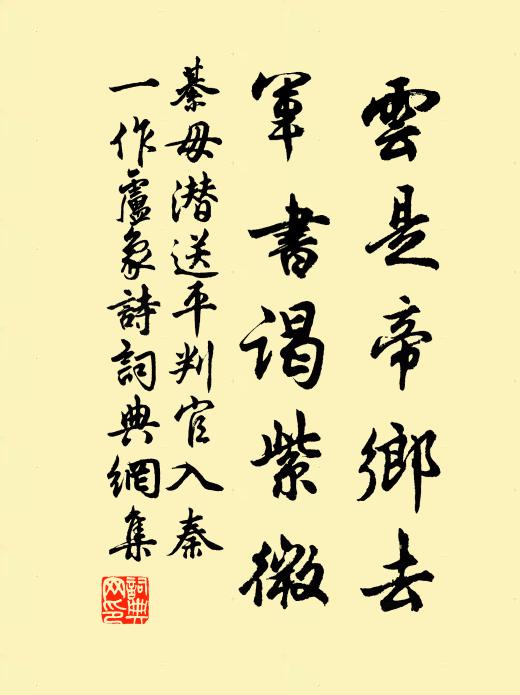 雲是帝鄉去
軍書謁紫微
綦毋潛送平判官入秦
一作盧象詩詞典網集